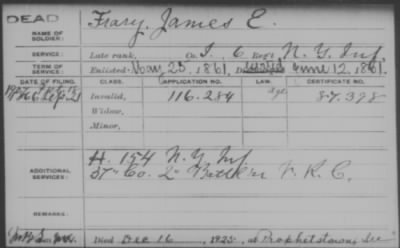 DEAD
NAME OF SOLDIER: Frary, James E.
SERVICE: Late rank, Co. I, 6 Reg't N.Y. Inf.
TERM OF SERVICE: Enlisted 25, 1861, June 12, 1861.
DATE OF FILING. CLASS. APPLICATION NO. LAW. CERTIFICATE NO.
Invalid, 116.284 87.378
Widow,
Minor,
ADDITIONAL SERVICES: H. 154 N.Y. Inf
57" Co. 2" Batt'l'n V.R.C.
REMARKS:
Died Dec 16, 1925, at Prophetstown, Ill